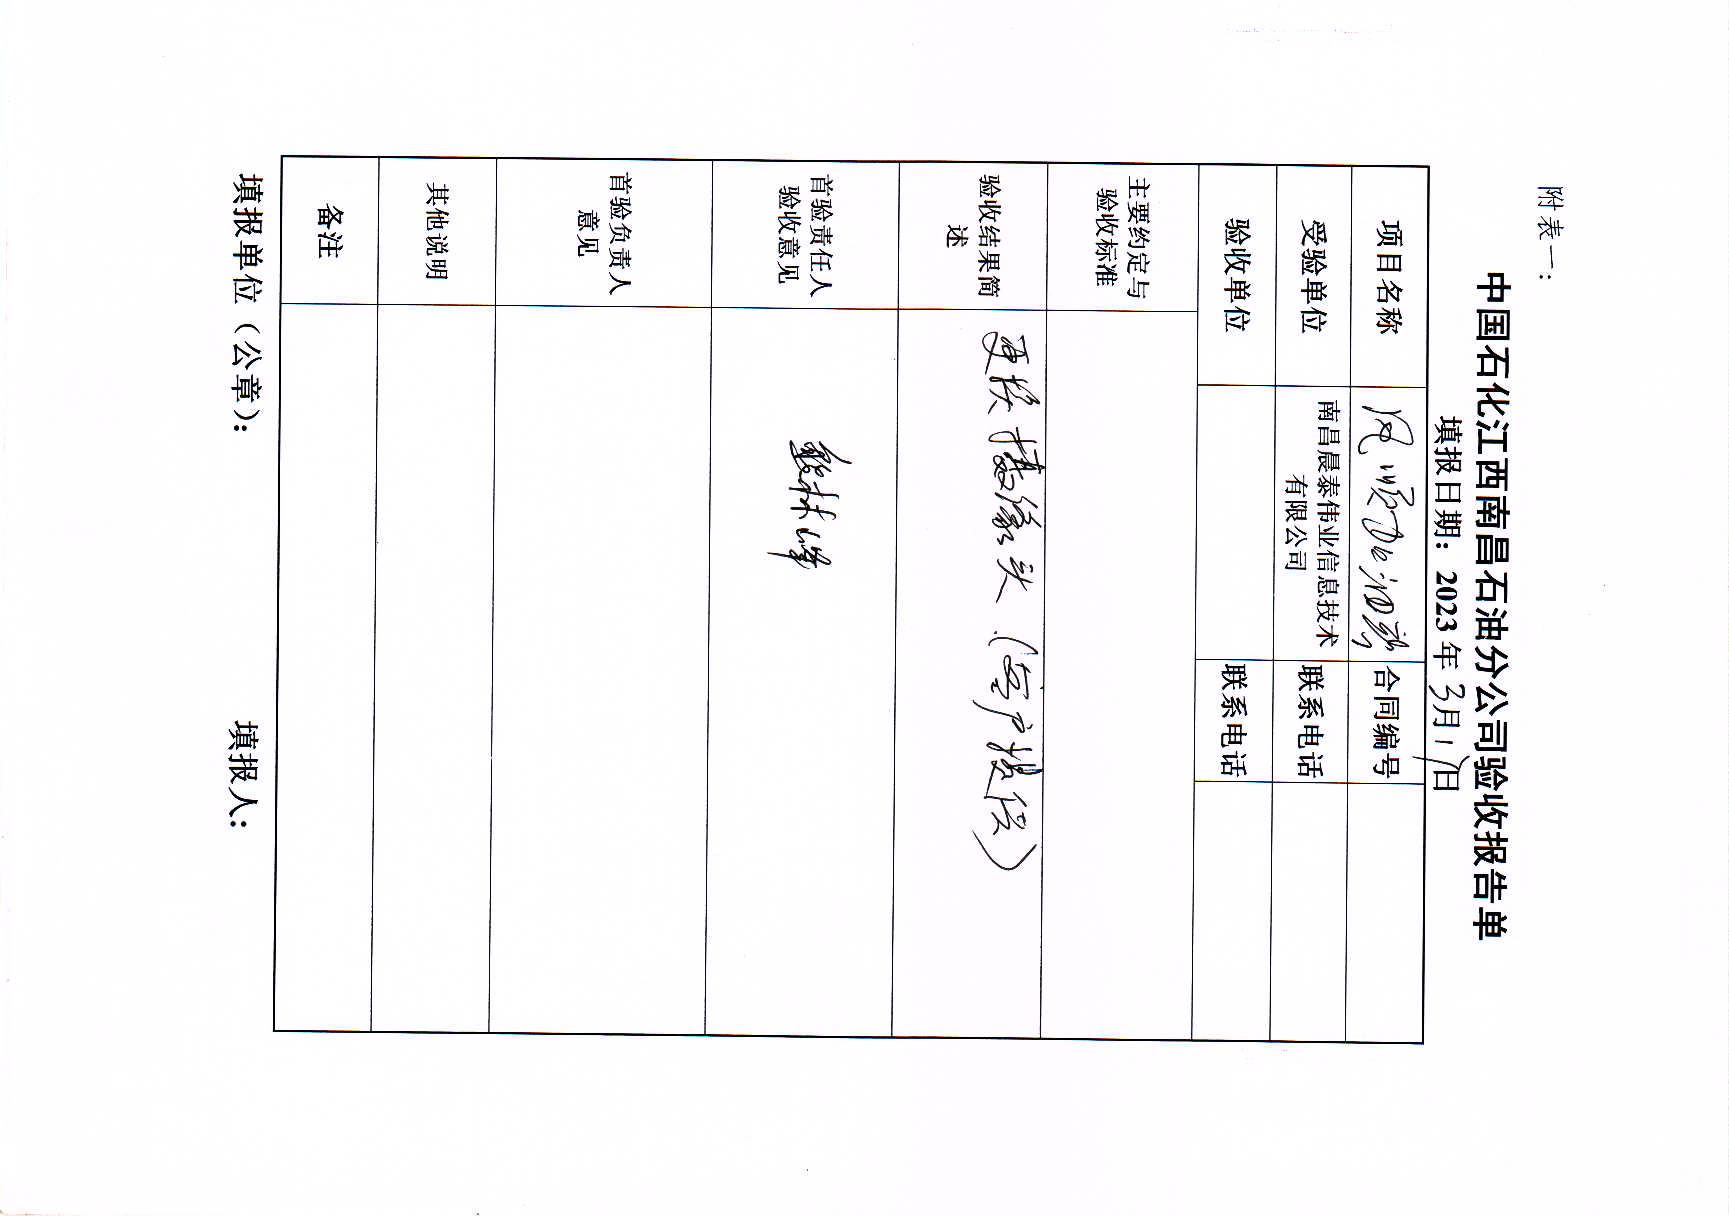 附表一：
中国石化江西南昌石油分公司验收报告单
填报日期：2023年3月17日
项目名称 风顺加油站 合同编号
受验单位 南昌晨泰伟业信息技术
有限公司 联系电话
验收单位 联系电话
主要约定与
验收标准
验收结果简
述
更换摄像头（客户提供）
首验责任人
验收意见
林峰
首验负责人
意见
其他说明
备注
填报单位（公章）： 填报人：